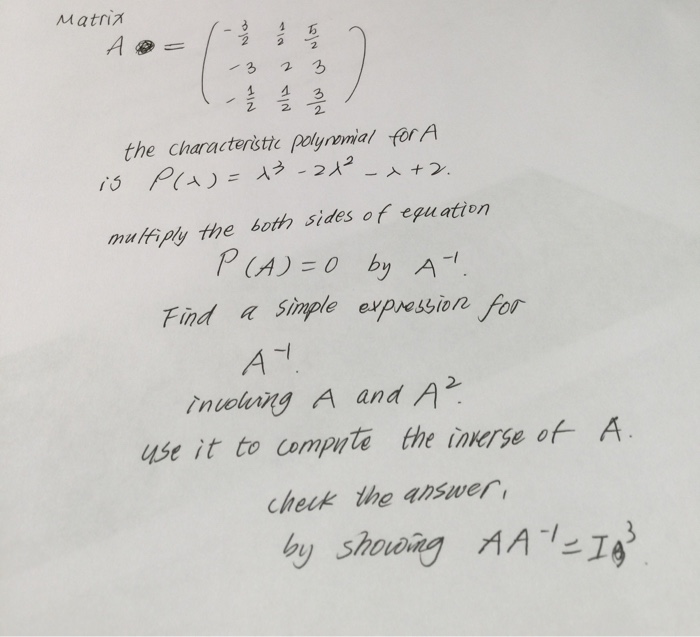 Matrix
A = ( -3/2 1/2 5/2
-3 2 3
-1/2 1/2 3/2 )
the characteristic polynomial for A
is P(λ) = λ³ - 2λ² - λ + 2.
multiply the both sides of equation
P(A) = 0 by A⁻¹.
Find a simple expression for
A⁻¹.
involving A and A².
use it to compute the inverse of A.
check the answer,
by showing AA⁻¹ = I³